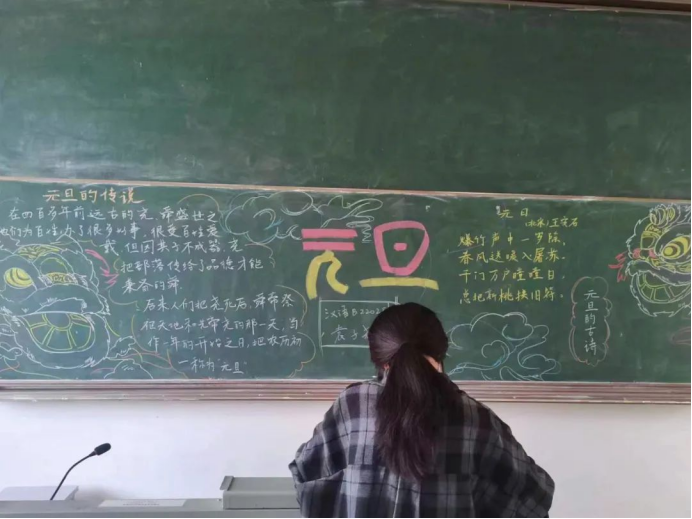 元旦的传说
在四百多年前远古的尧舜盛世之
他们为百姓办了很多好事,很受百姓爱
戴,但因其子不成器,尧
把部落传给了品德才能
兼备的舜
后来人们把尧死后,舜帝祭
祀天地和先帝尧的那一天,当
作一年的开始之日,把农历初
一称为元旦
元旦
汉语B220
元日
(北宋)王安石
爆竹声中一岁除,
春风送暖入屠苏.
千门万户曈曈日
总把新桃换旧符.
元旦的古诗